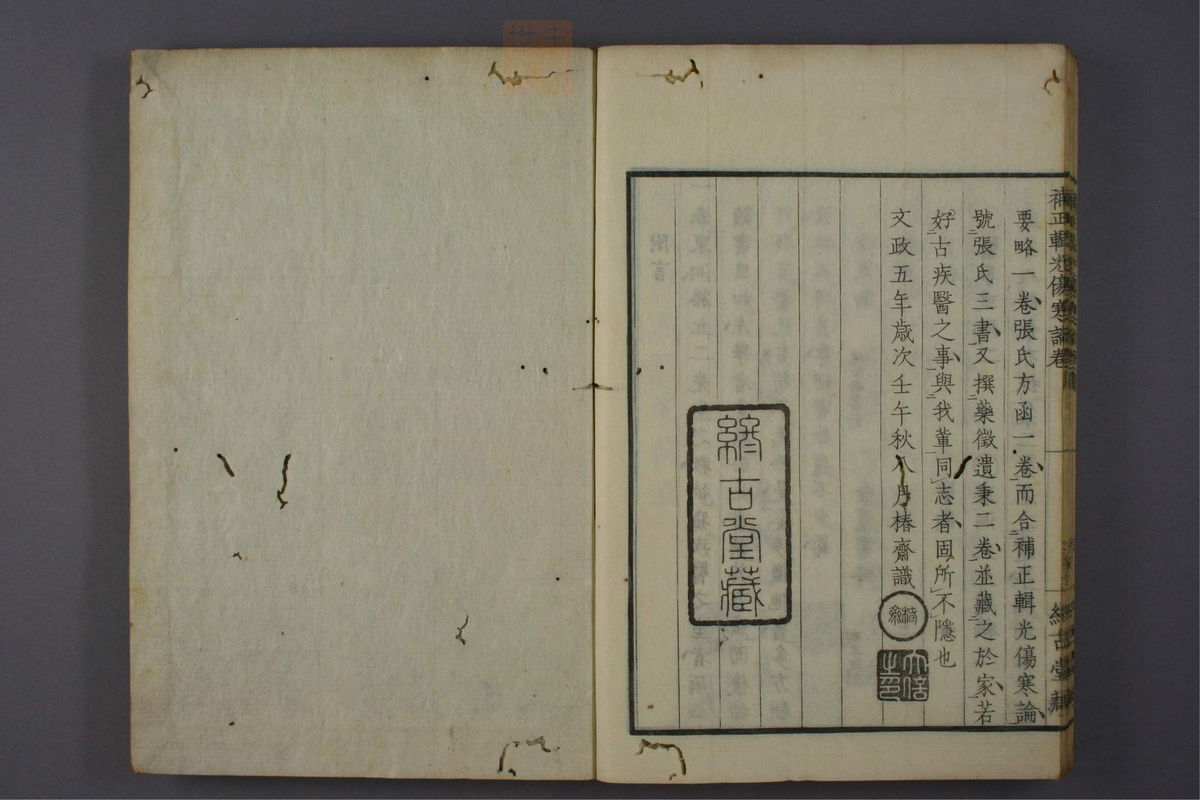 補正輯光傷寒論卷
要略一卷張氏方函一卷而合補正輯光傷寒論
號張氏三書又撰藥徵遺秉二卷並藏之於家若
好古疾醫之事與我輩同志者固所不隱也
文政五年歲次壬午秋八月椿齋識
古堂藏
古堂藏